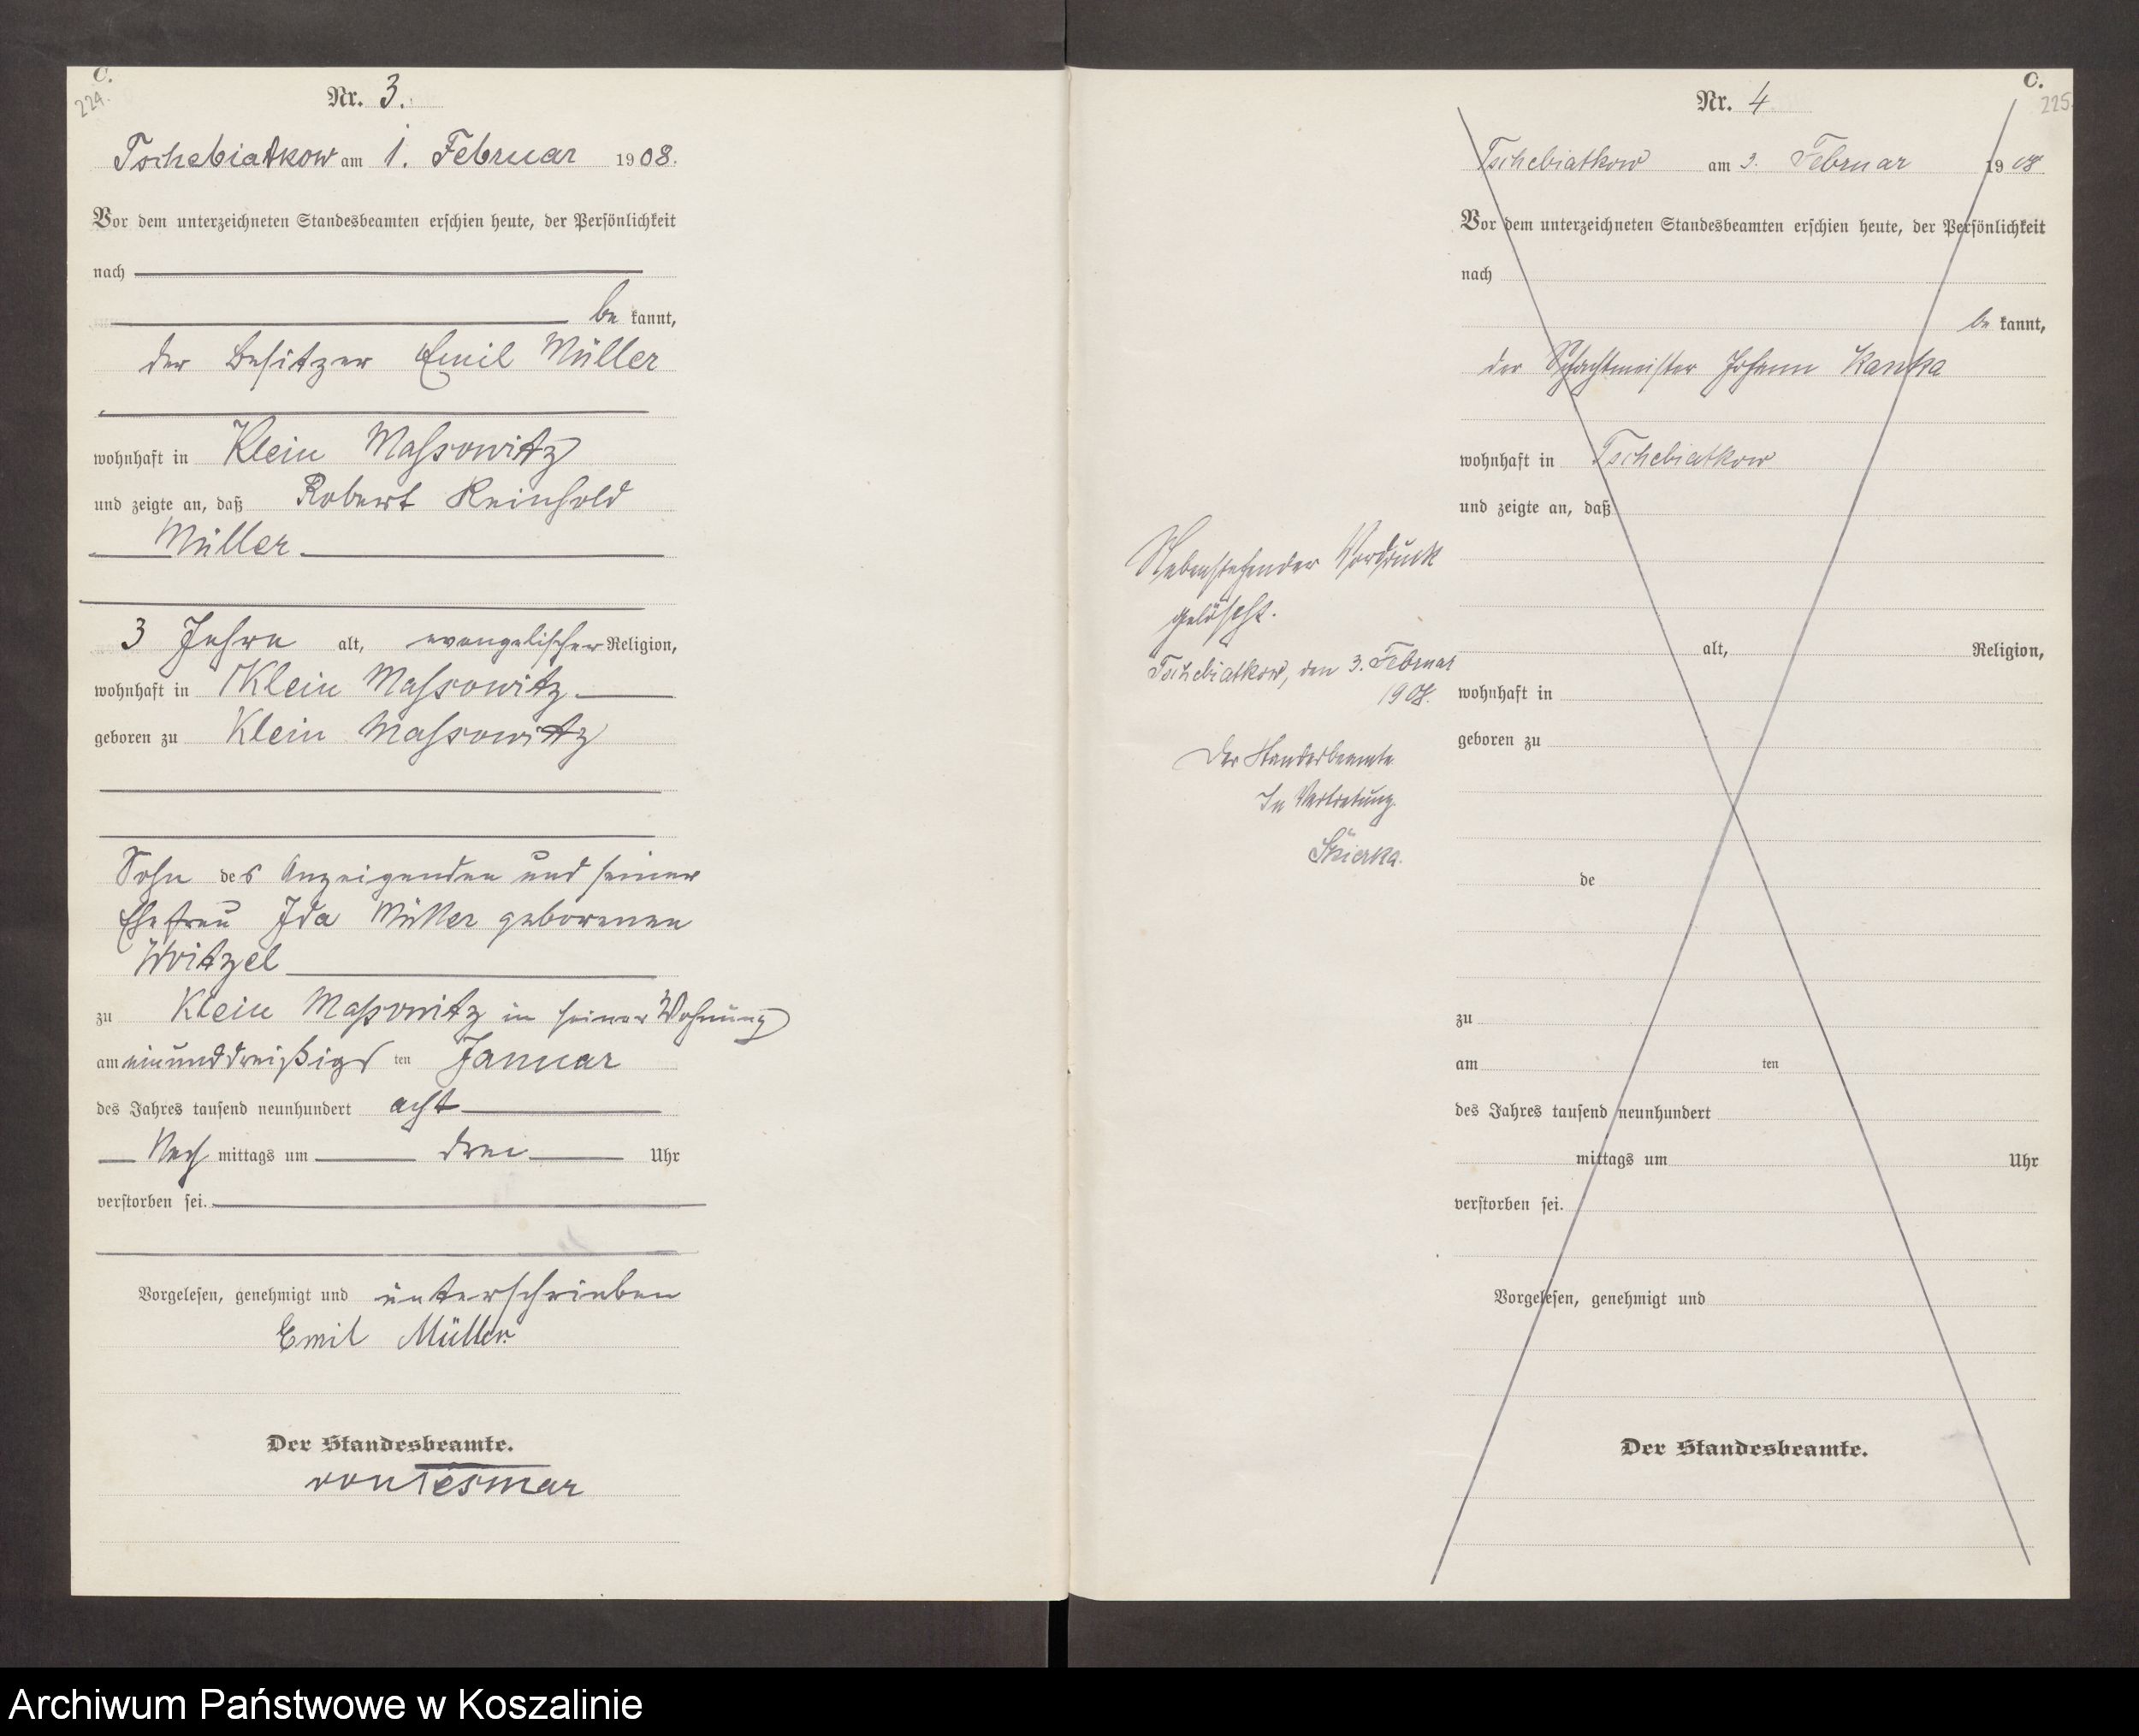 C.
224.
Nr. 3.
Tschebiatkow am 1. Februar 1908.
Vor dem unterzeichneten Standesbeamten erschien heute, der Persönlichkeit
nach
be kannt,
der Besitzer Emil Müller
wohnhaft in Klein Massowitz
und zeigte an, daß Robert Reinhold
Müller
3 Jahre alt, evangelischer Religion,
wohnhaft in Klein Massowitz
geboren zu Klein Massowitz
Sohn des Anzeigenden und seiner
Ehefrau Ida Müller geborenen
Woitzel
zu Klein Massowitz in seiner Wohnung
am einunddreißigs ten Januar
des Jahres tausend neunhundert acht
Nach mittags um drei Uhr
verstorben sei.
Vorgelesen, genehmigt und unterschrieben
Emil Müller
Der Standesbeamte.
von Tesmar
C.
225.
Nr. 4
Tschebiatkow am 3. Februar 1908
Vor dem unterzeichneten Standesbeamten erschien heute, der Persönlichkeit
nach
be kannt,
der Schachtmeister Johann
wohnhaft in Tschebiatkow
und zeigte an, daß
alt, Religion,
wohnhaft in
geboren zu
de
zu
am ten
des Jahres tausend neunhundert
mittags um Uhr
verstorben sei.
Vorgelesen, genehmigt und
Der Standesbeamte.
Nebenstehender Vordruck
gelöscht.
Tschebiatkow, den 3. Februar
1908.
Der Standesbeamte
In Vertretung.
Archiwum Państwowe w Koszalinie